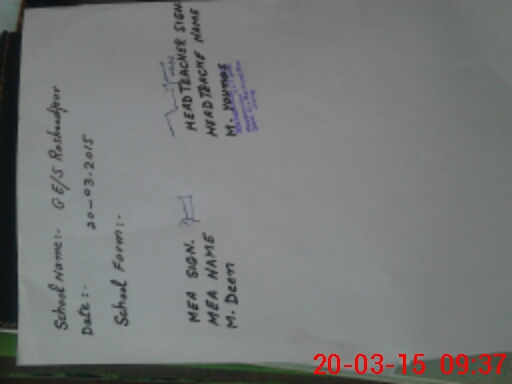 School Name:- GE/S Rasheedpur
Date:- 20-03-2015
School Form:-
MEA SIGN.
MEA NAME
M. Deen
HEADTEACHER SIGN
HEADTEACHE NAME
M. YOUNAS
20-03-15 09:37